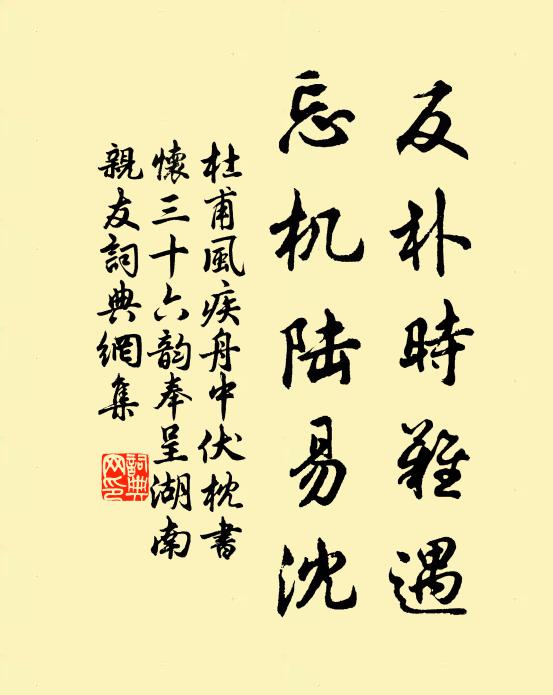 反朴時難遇
忘机陆易沈
杜甫風疾舟中伏枕書
懷三十六韵奉呈湖南
親友詞典網集
詞典
网印